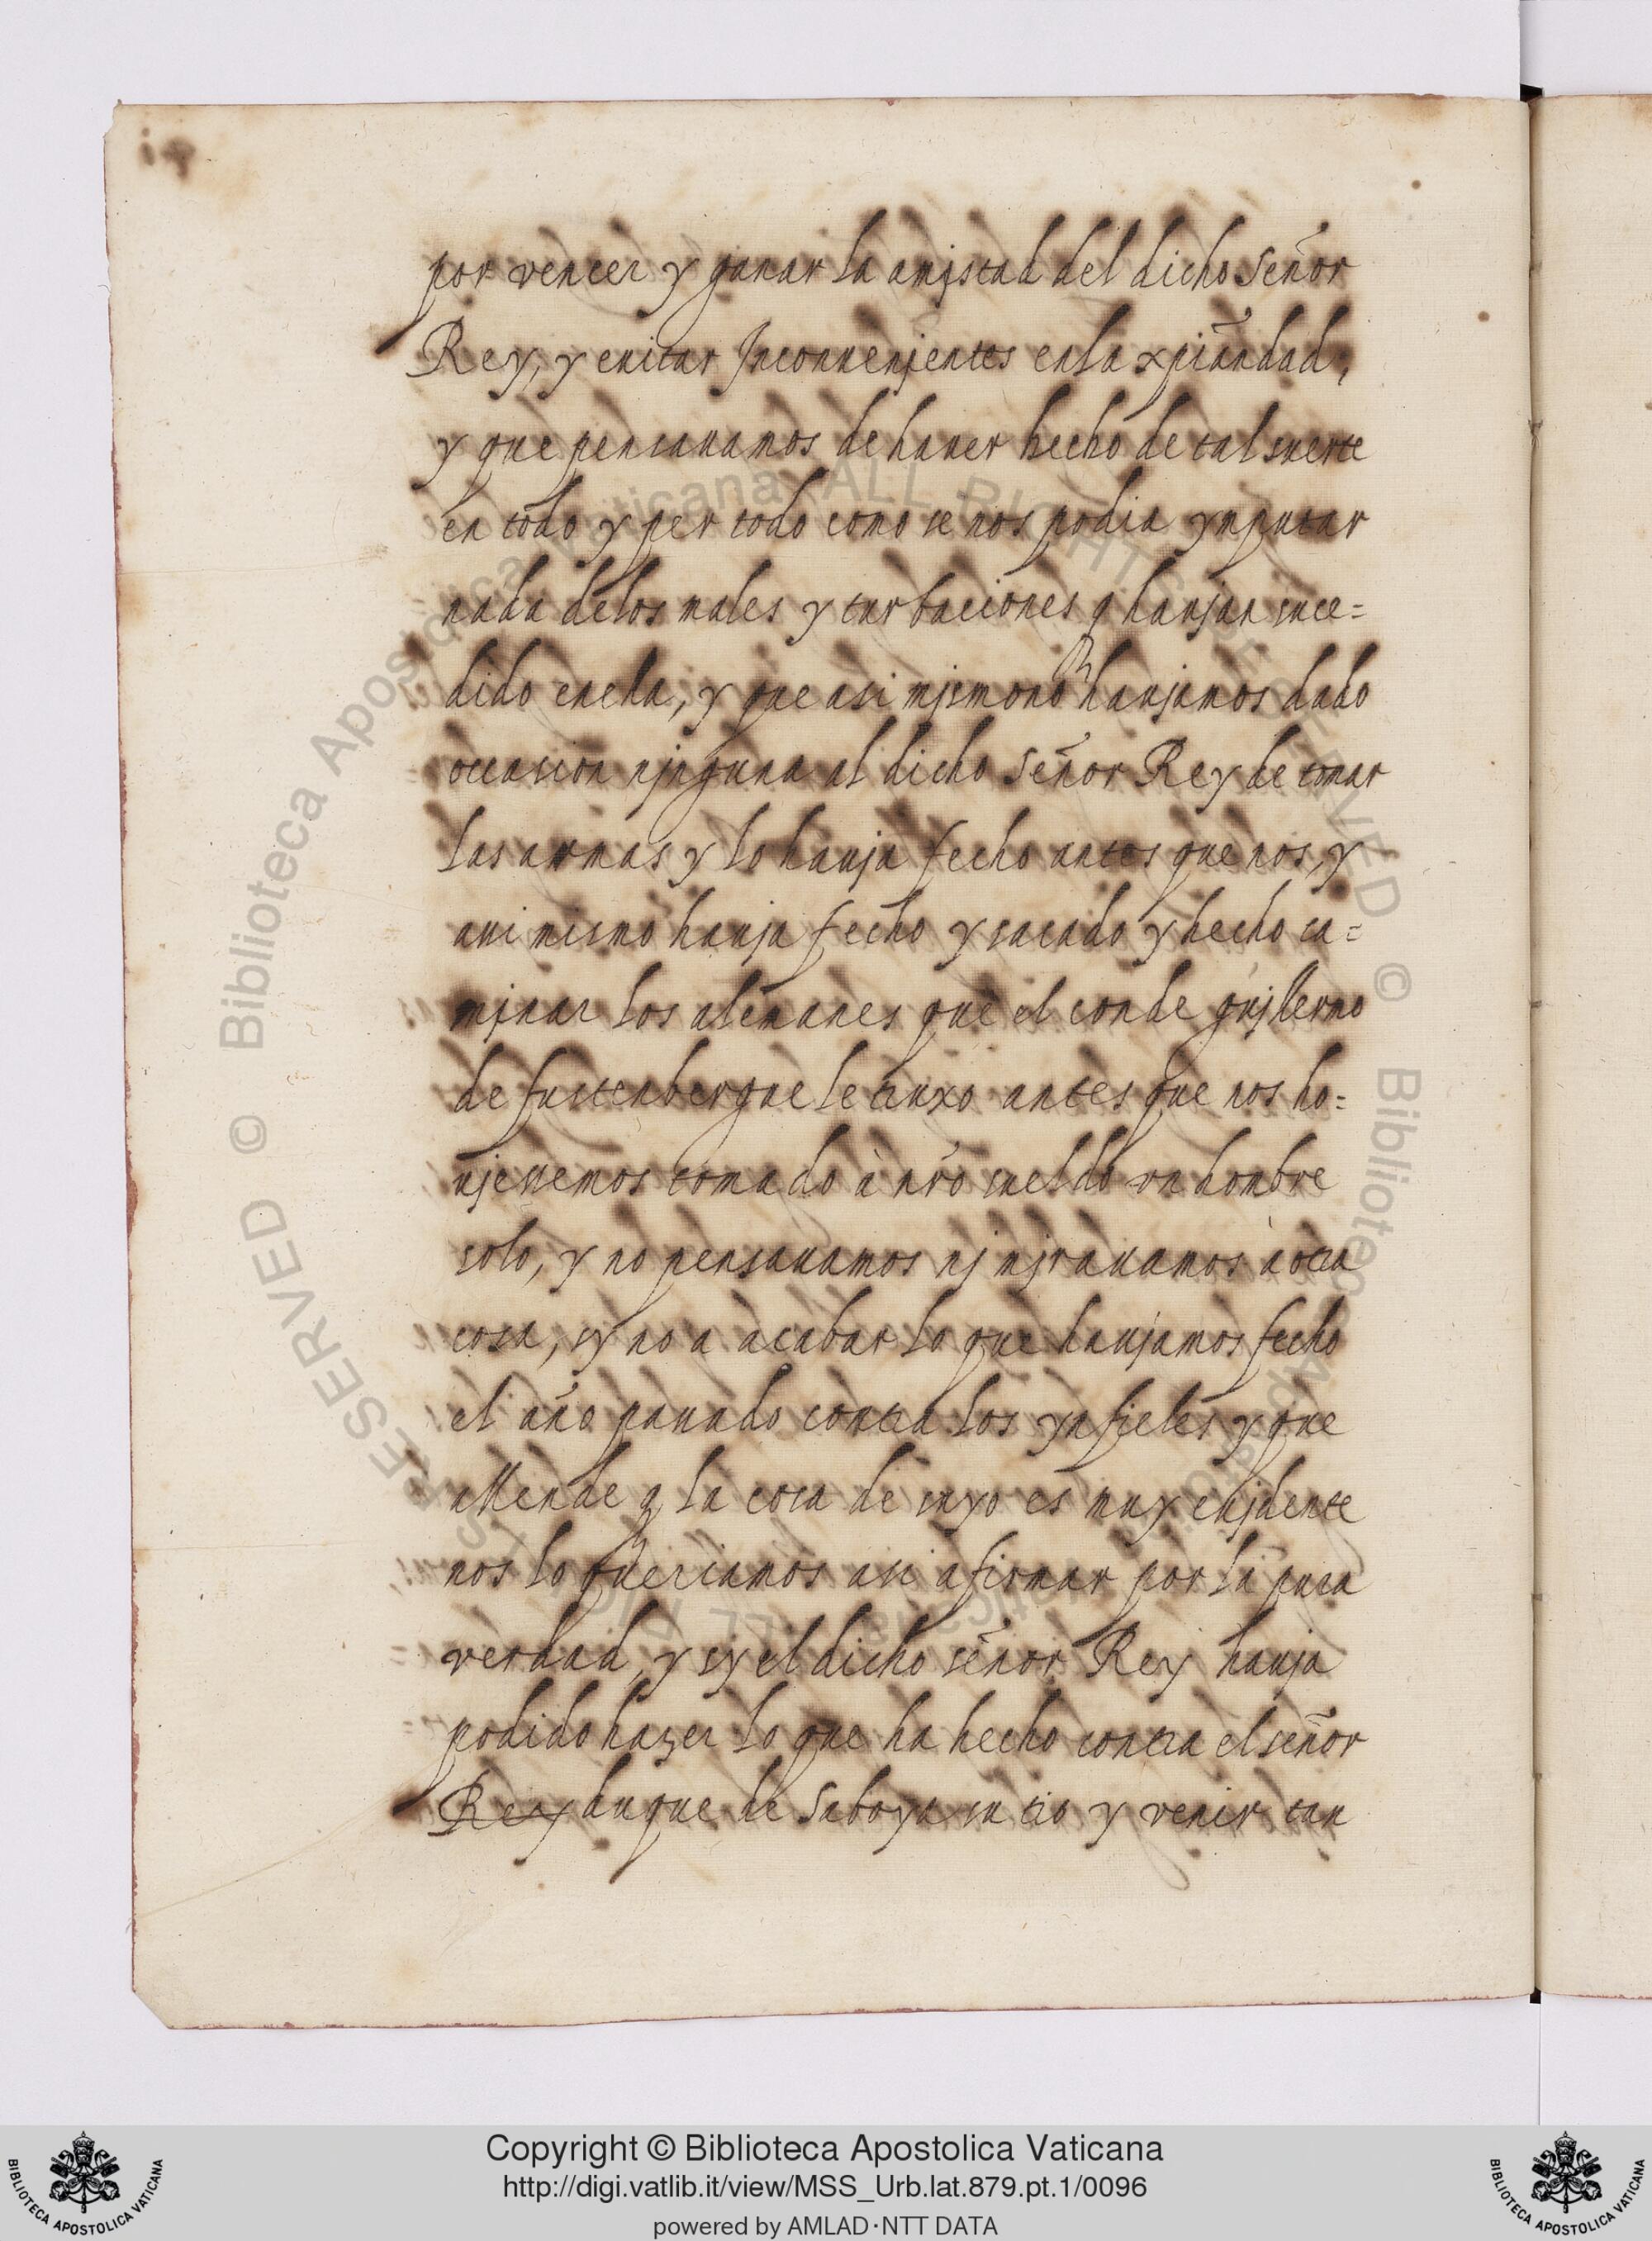 por vencer y ganar la amjstad del dicho Señor
Rey, y euitar Jnconuenjentes en la xpiãndad,
y que pensauamos de hauer hecho de tal suerte
en todo y per todo como se nos podia ymputar
nada delos males y turbaciones q haujan suce=
dido enella, y que asi mjsmo no haujamos dado
occasion njnguna al dicho Señor Rey de tomar
las armas y lo hauja fecho antes que nos, y
assi mismo hauja fecho y sacado y hecho ca=
mjnar los alemanes que el conde gujllermo
de fustenbergue le truxo antes que nos ho=
ujessemos tomado à nrõ sueldo vn hombre
solo, y no pensauamos nj mjrauamos à otra
cosa, sy no a acabar lo que haujamos fecho
el año passado contra los ynfieles y que
allende q la cosa de suyo es muy eujdente
nos lo queriamos asi afirmar por la pura
verdad, y sy el dicho señor Rey hauja
podido hazer lo que ha hecho contra el señor
Rey duque de Saboya su tio y venir tan
Copyright © Biblioteca Apostolica Vaticana
http://digi.vatlib.it/view/MSS_Urb.lat.879.pt.1/0096
powered by AMLAD·NTT DATA
BIBLIOTECA APOSTOLICA VATICANA
BIBLIOTECA APOSTOLICA VATICANA